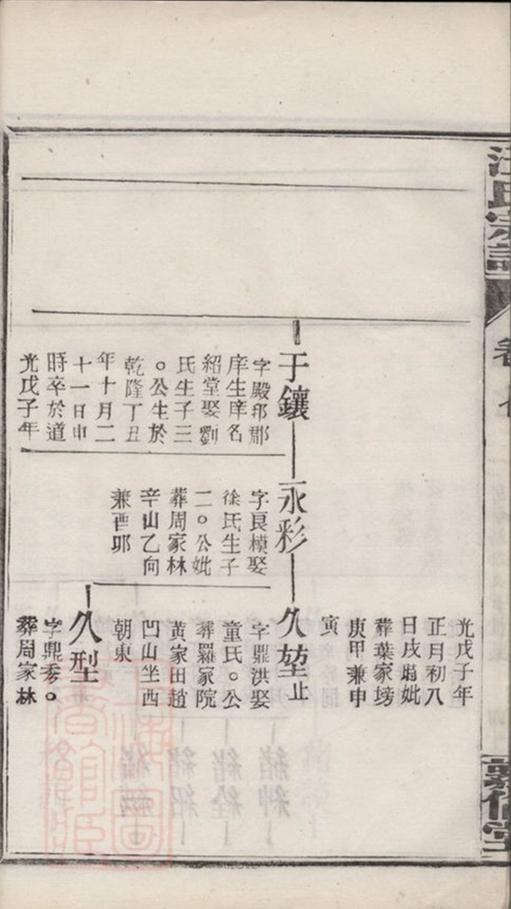 汪氏宗譜
敦倫堂
光戊子年
正月初八
日戌時妣
葬葉家塝
庚甲兼申
寅
于鑲
字殿邦郡
庠生庠名
紹堂娶劉
氏生子三
○公生於
乾隆丁丑
年十月二
十一日申
時卒於道
光戊子年
永彩
字良模娶
徐氏生子
二○公妣
葬周家林
辛山乙向
兼酉卯
久堃止
字鼎洪娶
童氏○公
葬羅家院
黃家田趙
凹山坐西
朝東
久型
字鼎秀○
葬周家林